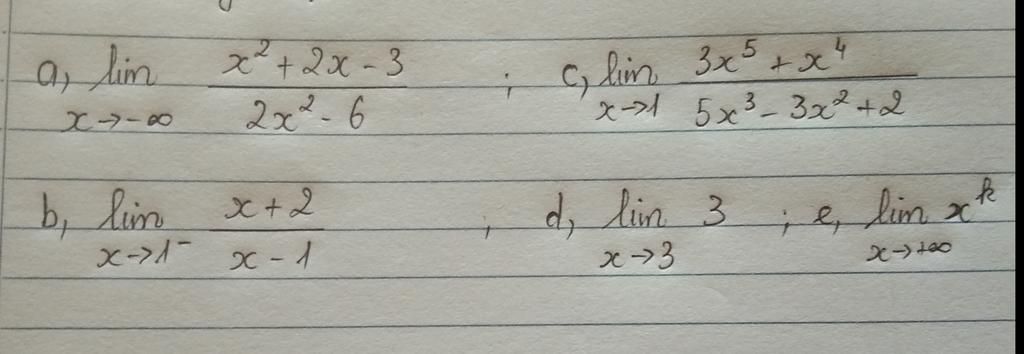 a, lim x→-∞ (x² + 2x - 3)/(2x² - 6) ; c, lim x→1 (3x⁵ + x⁴)/(5x³ - 3x² + 2)
b, lim x→1⁻ (x + 2)/(x - 1) ; d, lim x→3 3 ; e, lim x→+∞ xᵏ